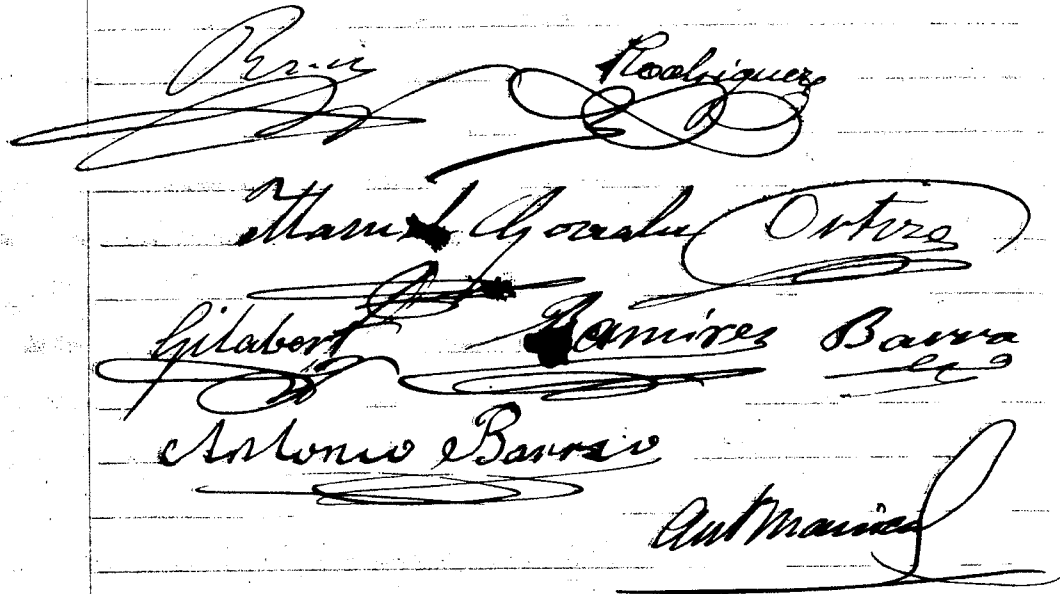 Ruiz Rodriguez
Manuel Gonzalez Ortiz
Gilabert Ramirez Barra
Antonio Barrio
Ant